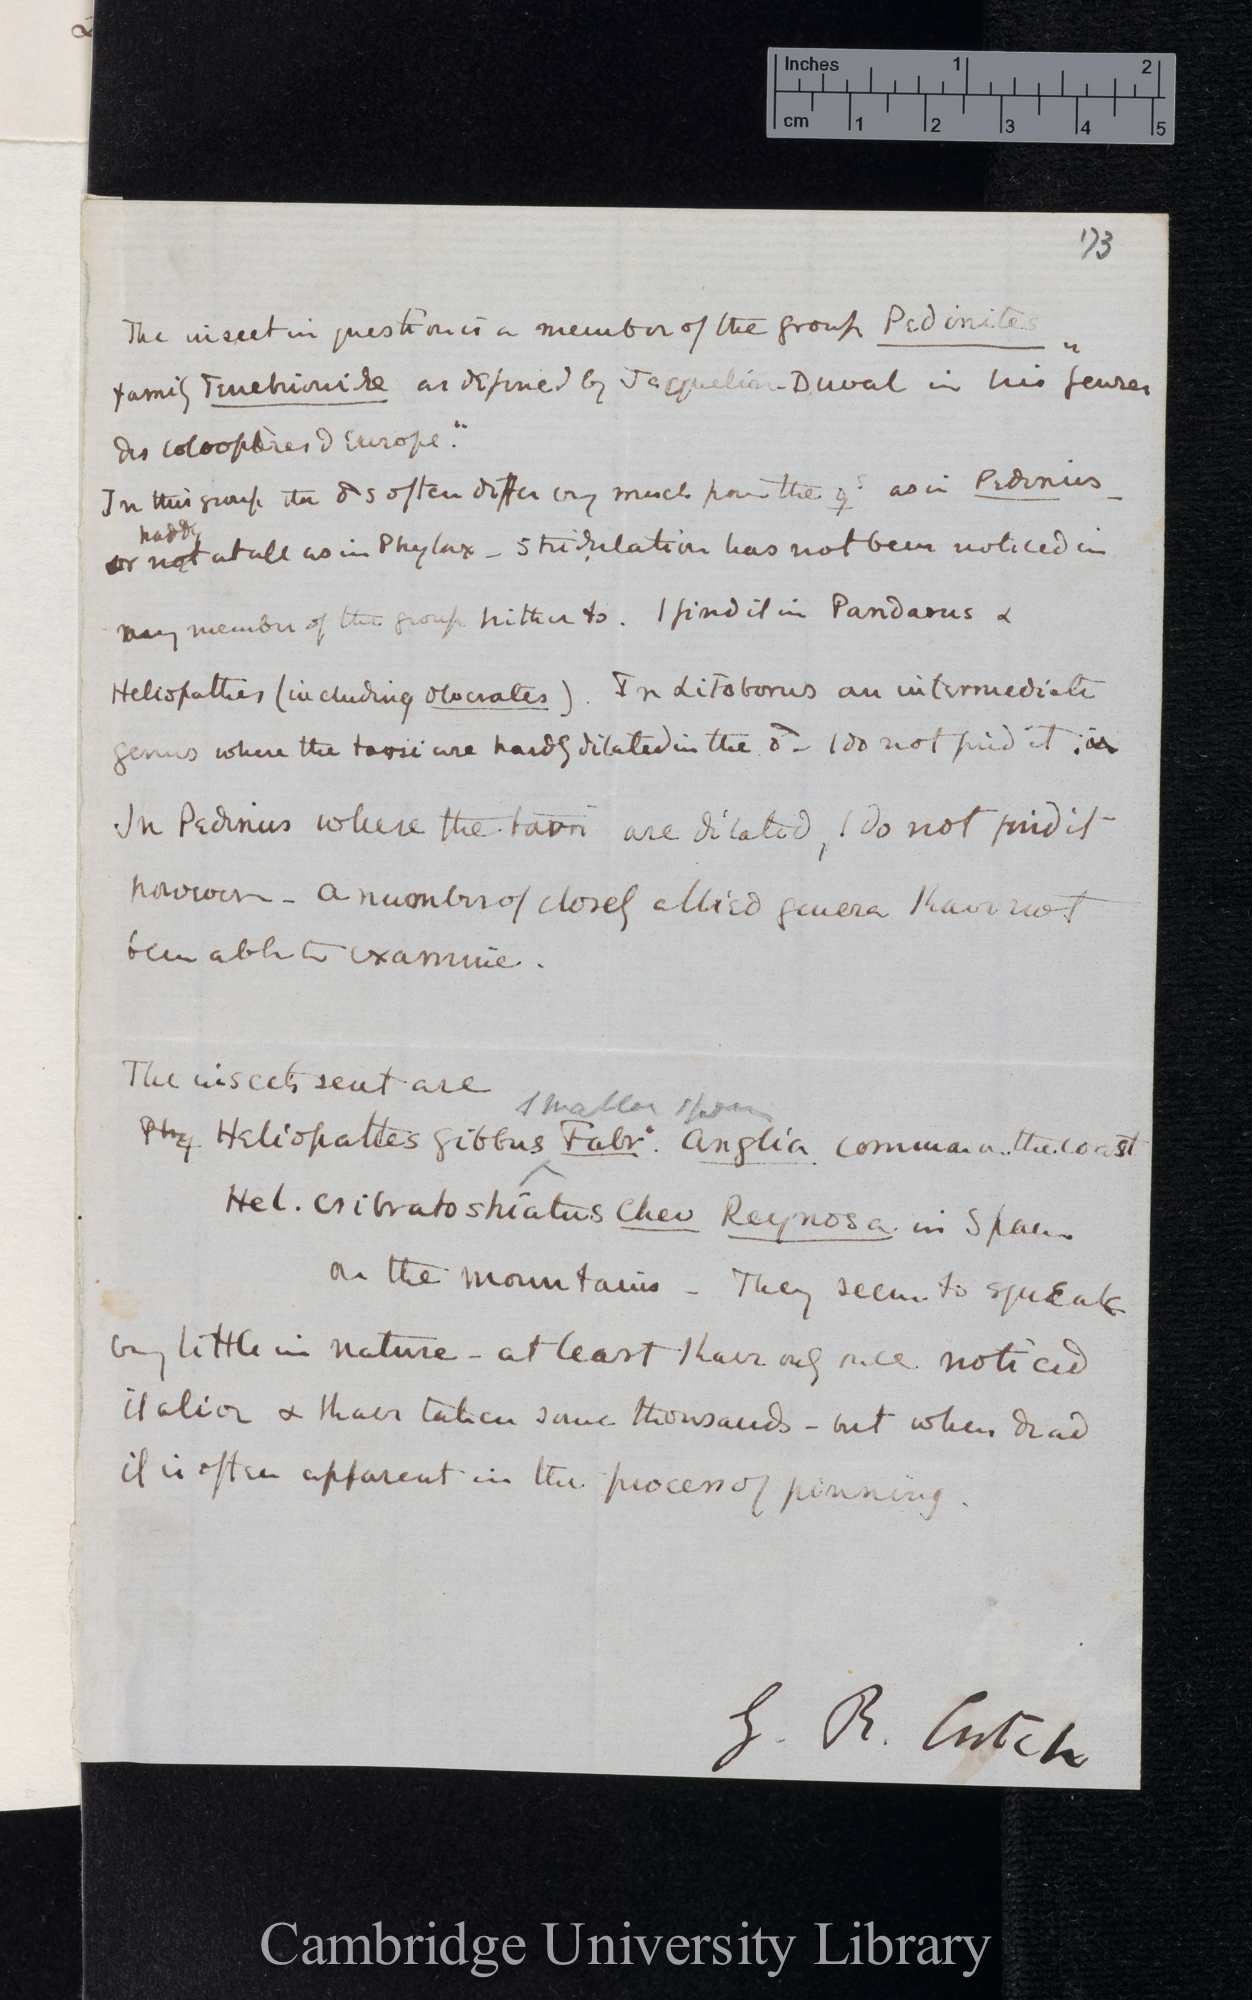 Inches 1 2
cm 1 2 3 4 5
173
The insect in question is a member of the group Pedinites
family Tenebrionidæ as defined by Jacquelin-Duval in his "genres
des coleoptères d Europe."
In this group the ♂s often differ very much from the ♀s as in Pedinus -
hardly
or not at all as in Phylax - Stridulation has not been noticed in
any member of the group hitherto. I find it in Pandarus &
Heliopathes (including Olocrates). In Litoborus an intermediate
genus where the tarsi are hardly dilated in the ♂ - I do not find it
In Pedinus where the tarsi are dilated, I do not find it
however - A number of closely allied genera I have not
been able to examine.
The insects sent are
smaller specm
Phy Heliopathes gibbus Fabr. Anglia common on the coast
Hel. cribratostriatus Chev Reynosa in Spain
on the mountains - They seem to squeak
very little in nature - at least I have only once noticed
it alive & I have taken some thousands - but when dead
it is often apparent in the process of pinning.
G. R. Crotch
Cambridge University Library